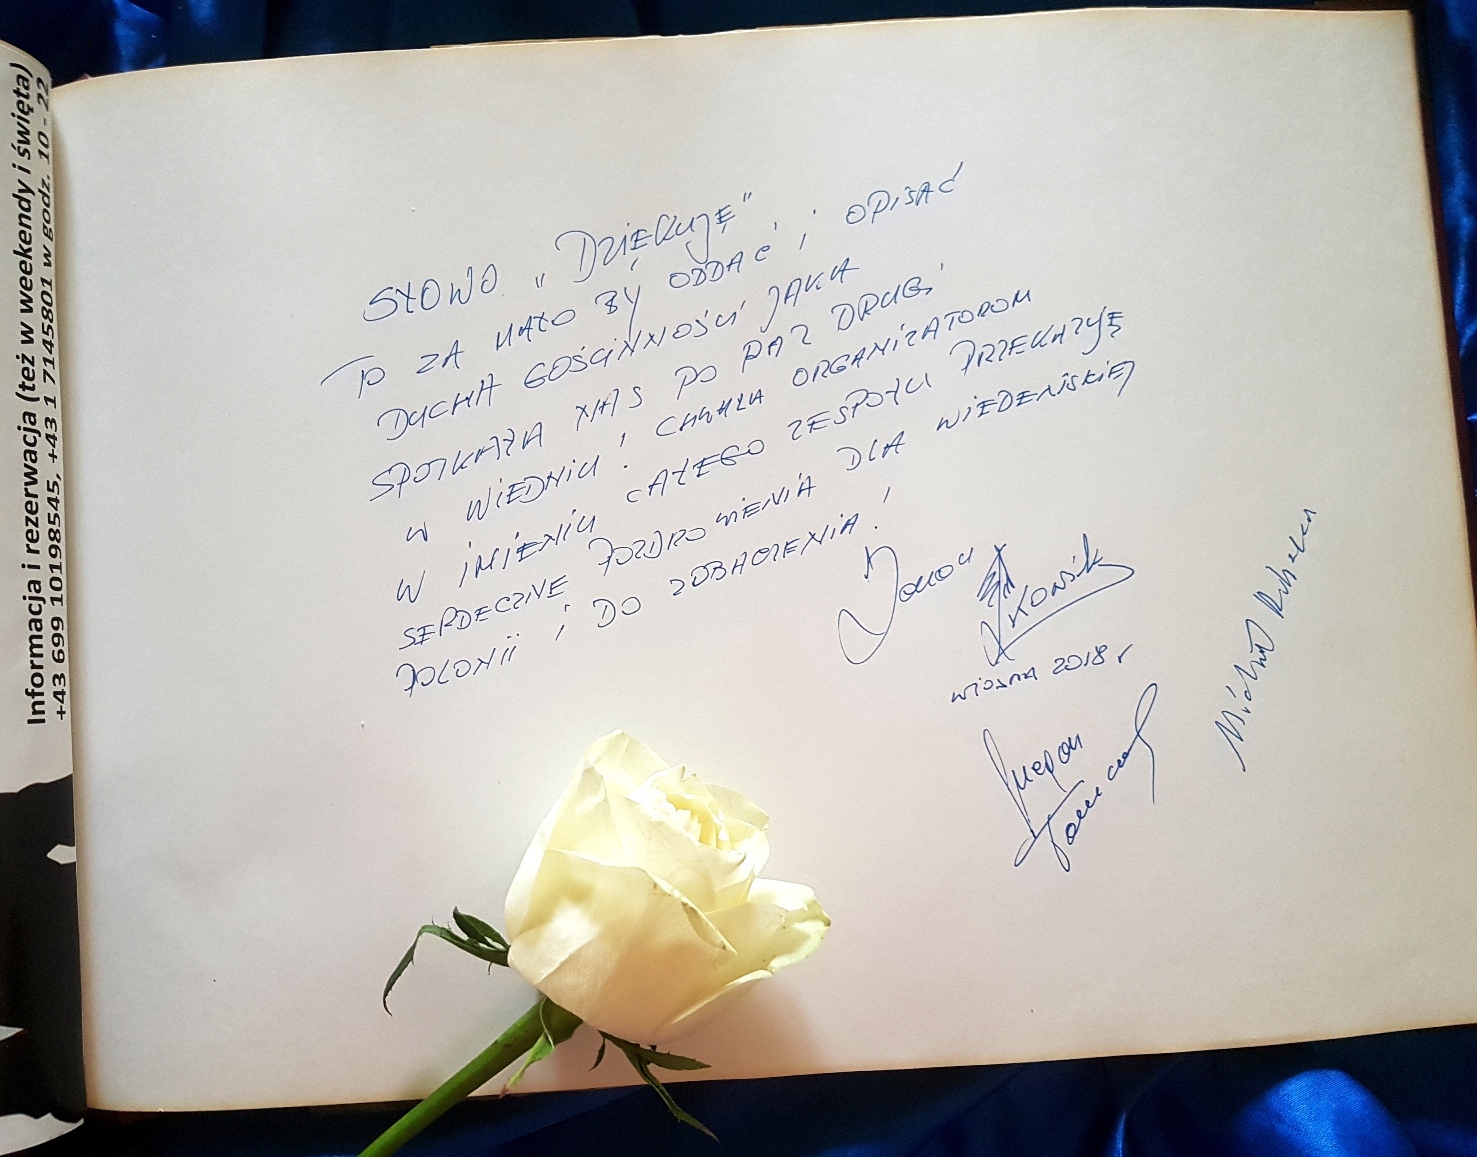 Informacja i rezerwacja (też w weekendy i święta)
+43 699 10198545, +43 1 7145801 w godz. 10 - 22
SŁOWO „DZIĘKUJĘ"
TO ZA MAŁO BY ODDAĆ i OPISAĆ
DUCHA GOŚCINNOŚCI JAKA
SPOTKAŁA NAS PO RAZ DRUGI
W WIEDNIU! CHWAŁA ORGANIZATOROM
W IMIENIU CAŁEGO ZESPOŁU PRZEKAZUJĘ
SERDECZNE POZDROWIENIA DLA WIEDEŃSKIEJ
POLONII i DO ZOBACZENIA!
WIOSNA 2018 r
Michał